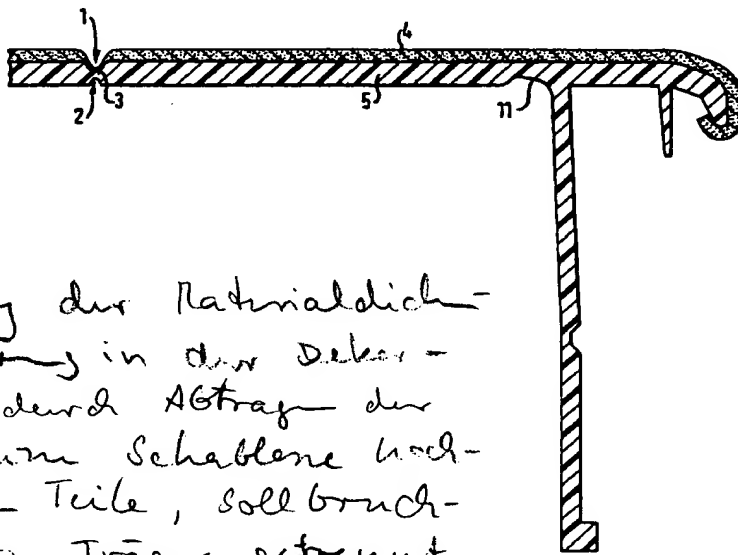 1
4
2 3 5 11
der Materialdich-
in der Dekor-
durch Abtragen der
Schablone hoch-
Teile, Sollbruch-
getrennt